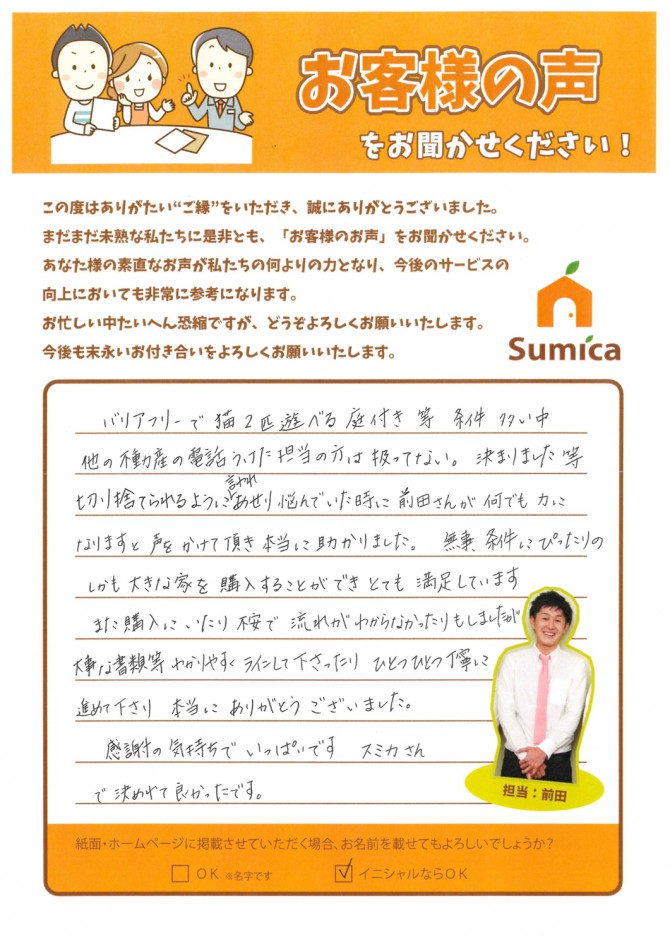 お客様の声
をお聞かせください！
この度はありがたい“ご縁”をいただき、誠にありがとうございました。
まだまだ未熟な私たちに是非とも、「お客様のお声」をお聞かせください。
あなた様の素直なお声が私たちの何よりの力となり、今後のサービスの
向上においても非常に参考になります。
お忙しい中たいへん恐縮ですが、どうぞよろしくお願いいたします。
今後も末永いお付き合いをよろしくお願いいたします。
Sumica
バリアフリーで 猫2匹遊べる 庭付き 等 条件 多い中
他の不動産の電話うけた担当の方は扱ってない。決まりました 等
切り捨てられるように言われあせり悩んでいた時に 前田さんが 何でも力に
なりますと 声をかけて頂き 本当に助かりました。 無事 条件にぴったりの
しかも 大きな家を 購入することができ とても 満足しています
また購入にいたり 不安で 流れがわからなかったりもしましたが
大事な書類等 わかりやすく ラインして下さったり ひとつひとつ丁寧に
進めて下さり 本当に ありがとう ございました。
感謝の気持ちで いっぱいです スミカさん
で決めれて良かったです。
担当：前田
紙面・ホームページに掲載させていただく場合、お名前を載せてもよろしいでしょうか？
OK ※名字です ✓ イニシャルならOK